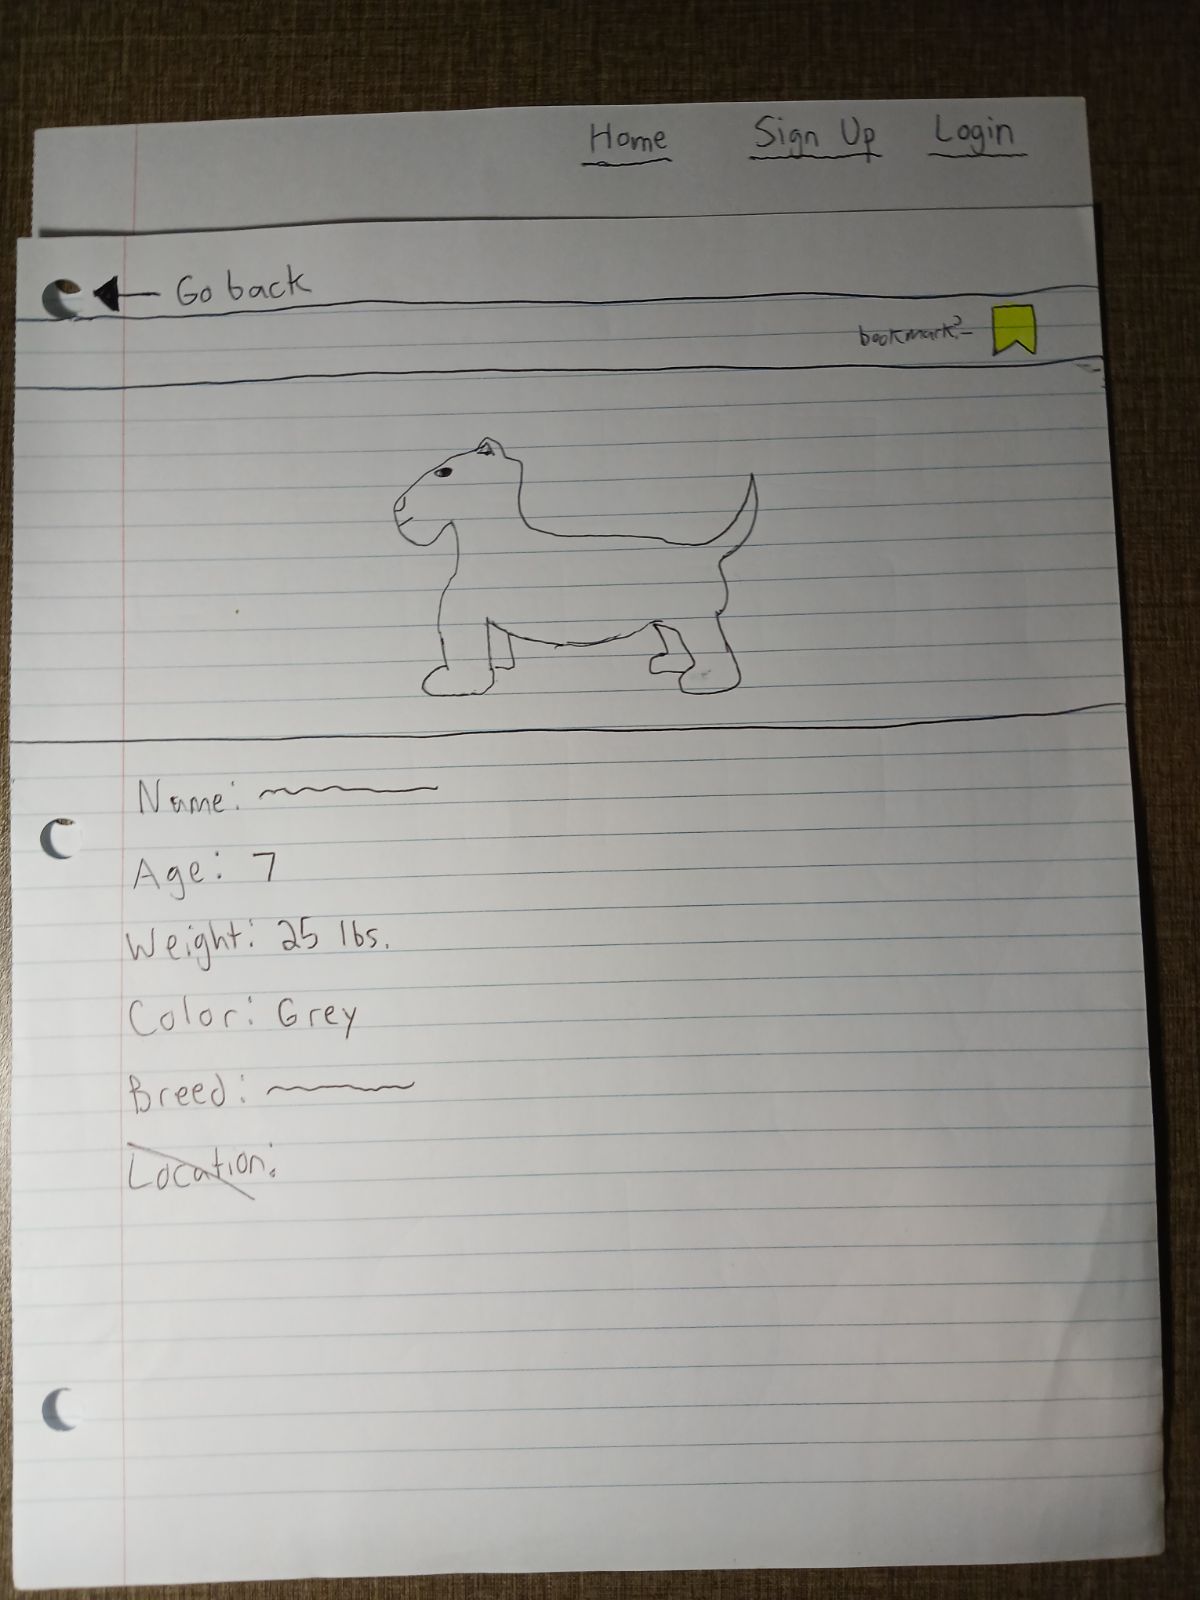 Home Sign Up Login
Go back
bookmark?
Name:
Age: 7
Weight: 25 lbs.
Color: Grey
Breed:
Location: